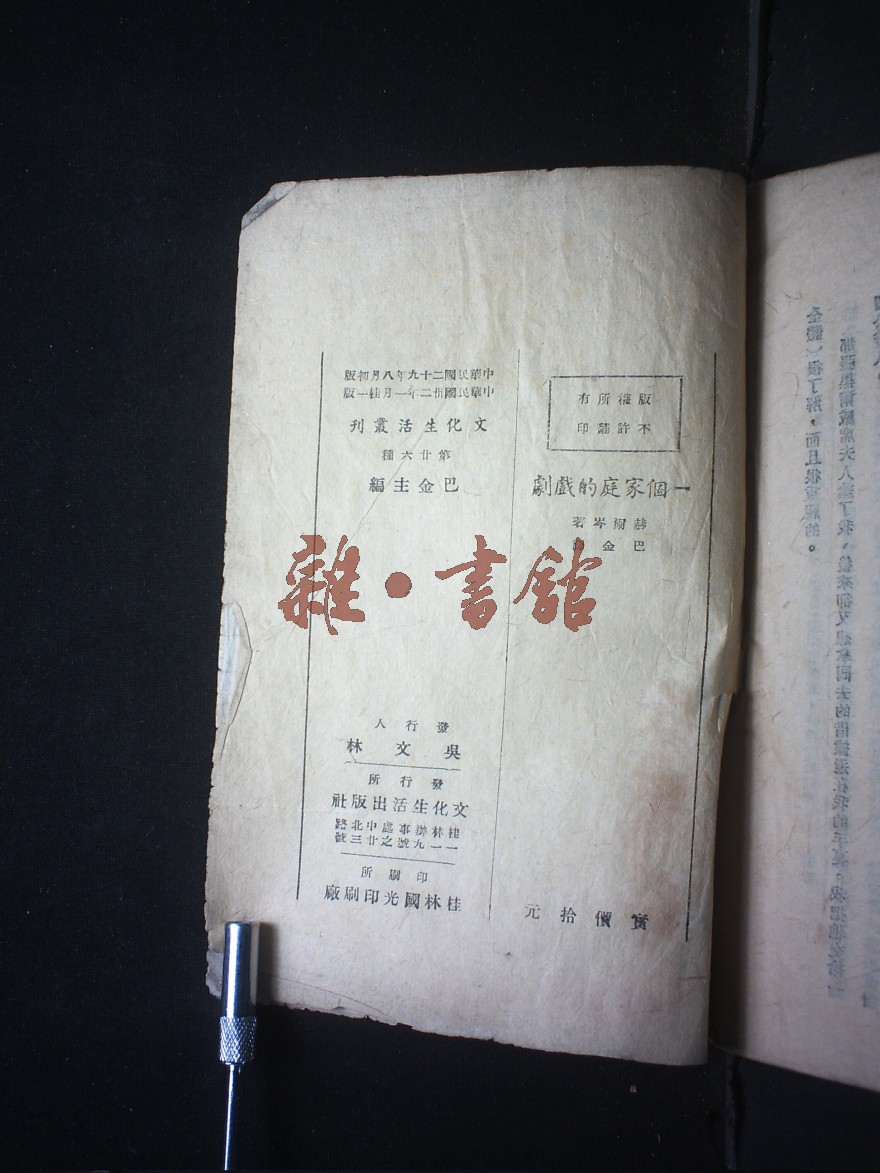 版權所有
不許翻印
一個家庭的戲劇
赫爾岑著
巴金
實價拾元
中華民國二十九年八月初版
中華民國卅二年一月桂一版
文化生活叢刊
第廿六種
巴金主編
發行人
吳文林
發行所
文化生活出版社
桂林辦事處中北路
一一九號之廿三號
印刷所
桂林國光印刷廠
雜·書館
全體）很了解，而且很重視的。